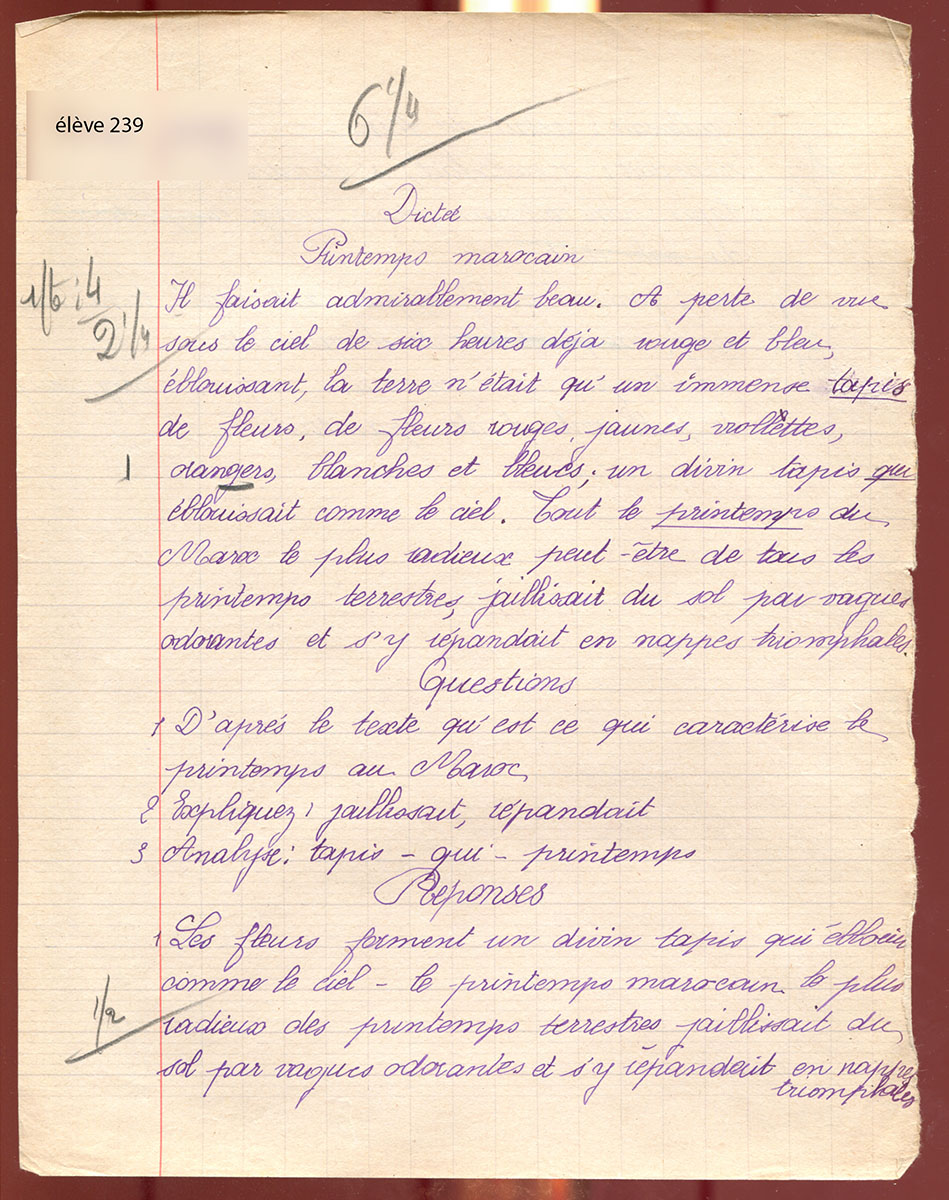 élève 239
6 1/4
Dictée
Printemps marocain
1/6 : 4
2 1/4
Il faisait admirallement beau. A perte de vue
sous le ciel de six heures déja rouge et bleu,
éblouissant, la terre n'était qu'un immense tapis
de fleurs, de fleurs rouges, jaunes, viollettes,
1 orangers, blanches et bleues; un divin tapis qui
éblouissait comme le ciel. Tout le printemps du
Maroc le plus radieux peut-être de tous les
printemps terrestres, jaillisait du sol par vagues
odorantes et s'y répandait en nappes triomphales.
Questions
1 D'aprés le texte qu'est ce qui caractérise le
printemps au Maroc
2 Expliquez: jaillissait, répandait
3 Analyse: tapis - qui - printemps
Réponses
1 Les fleurs forment un divin tapis qui
comme le ciel - le printemps marocain le plus
1/2
radieux des printemps terrestres jaillissait du
sol par vagues odorantes et s'y répandait en nappes
triomphales